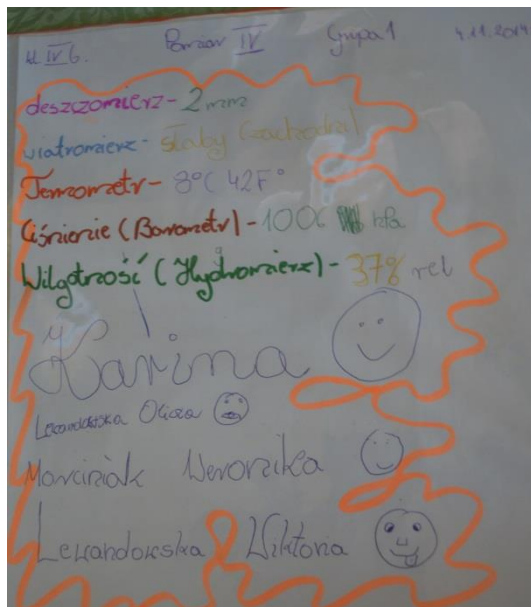 kl. IV b. Pomiar IV Grupa 1 4.11.2014
deszczomierz - 2 mm
wiatromierz - słaby (zachodni)
Termometr - 8°C 42F°
Ciśnienie (Barometr) - hPa
Wilgotność (Hydromierz) - 37% rel
Karina
Lewandowska Oliwia
Marciniak Weronika
Lewandowska Wiktoria